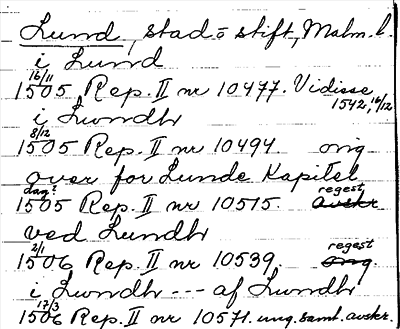 Lund, stad o stift, Malm. l.
i Lund
16/11
1505 Rep. II nr 10477. Vidisse
1542, 16/12
i Lwndh
8/12
1505 Rep. II nr 10494 orig
over for Lunde Kapitel
dag? regest
1505 Rep. II nr 10515 avskr
ved Lundh
2/1 regest
1506 Rep. II nr 10539. orig
i Lwndh --- af Lwndh
17/3
1506 Rep. II nr 10571. ung. saml. avskr.